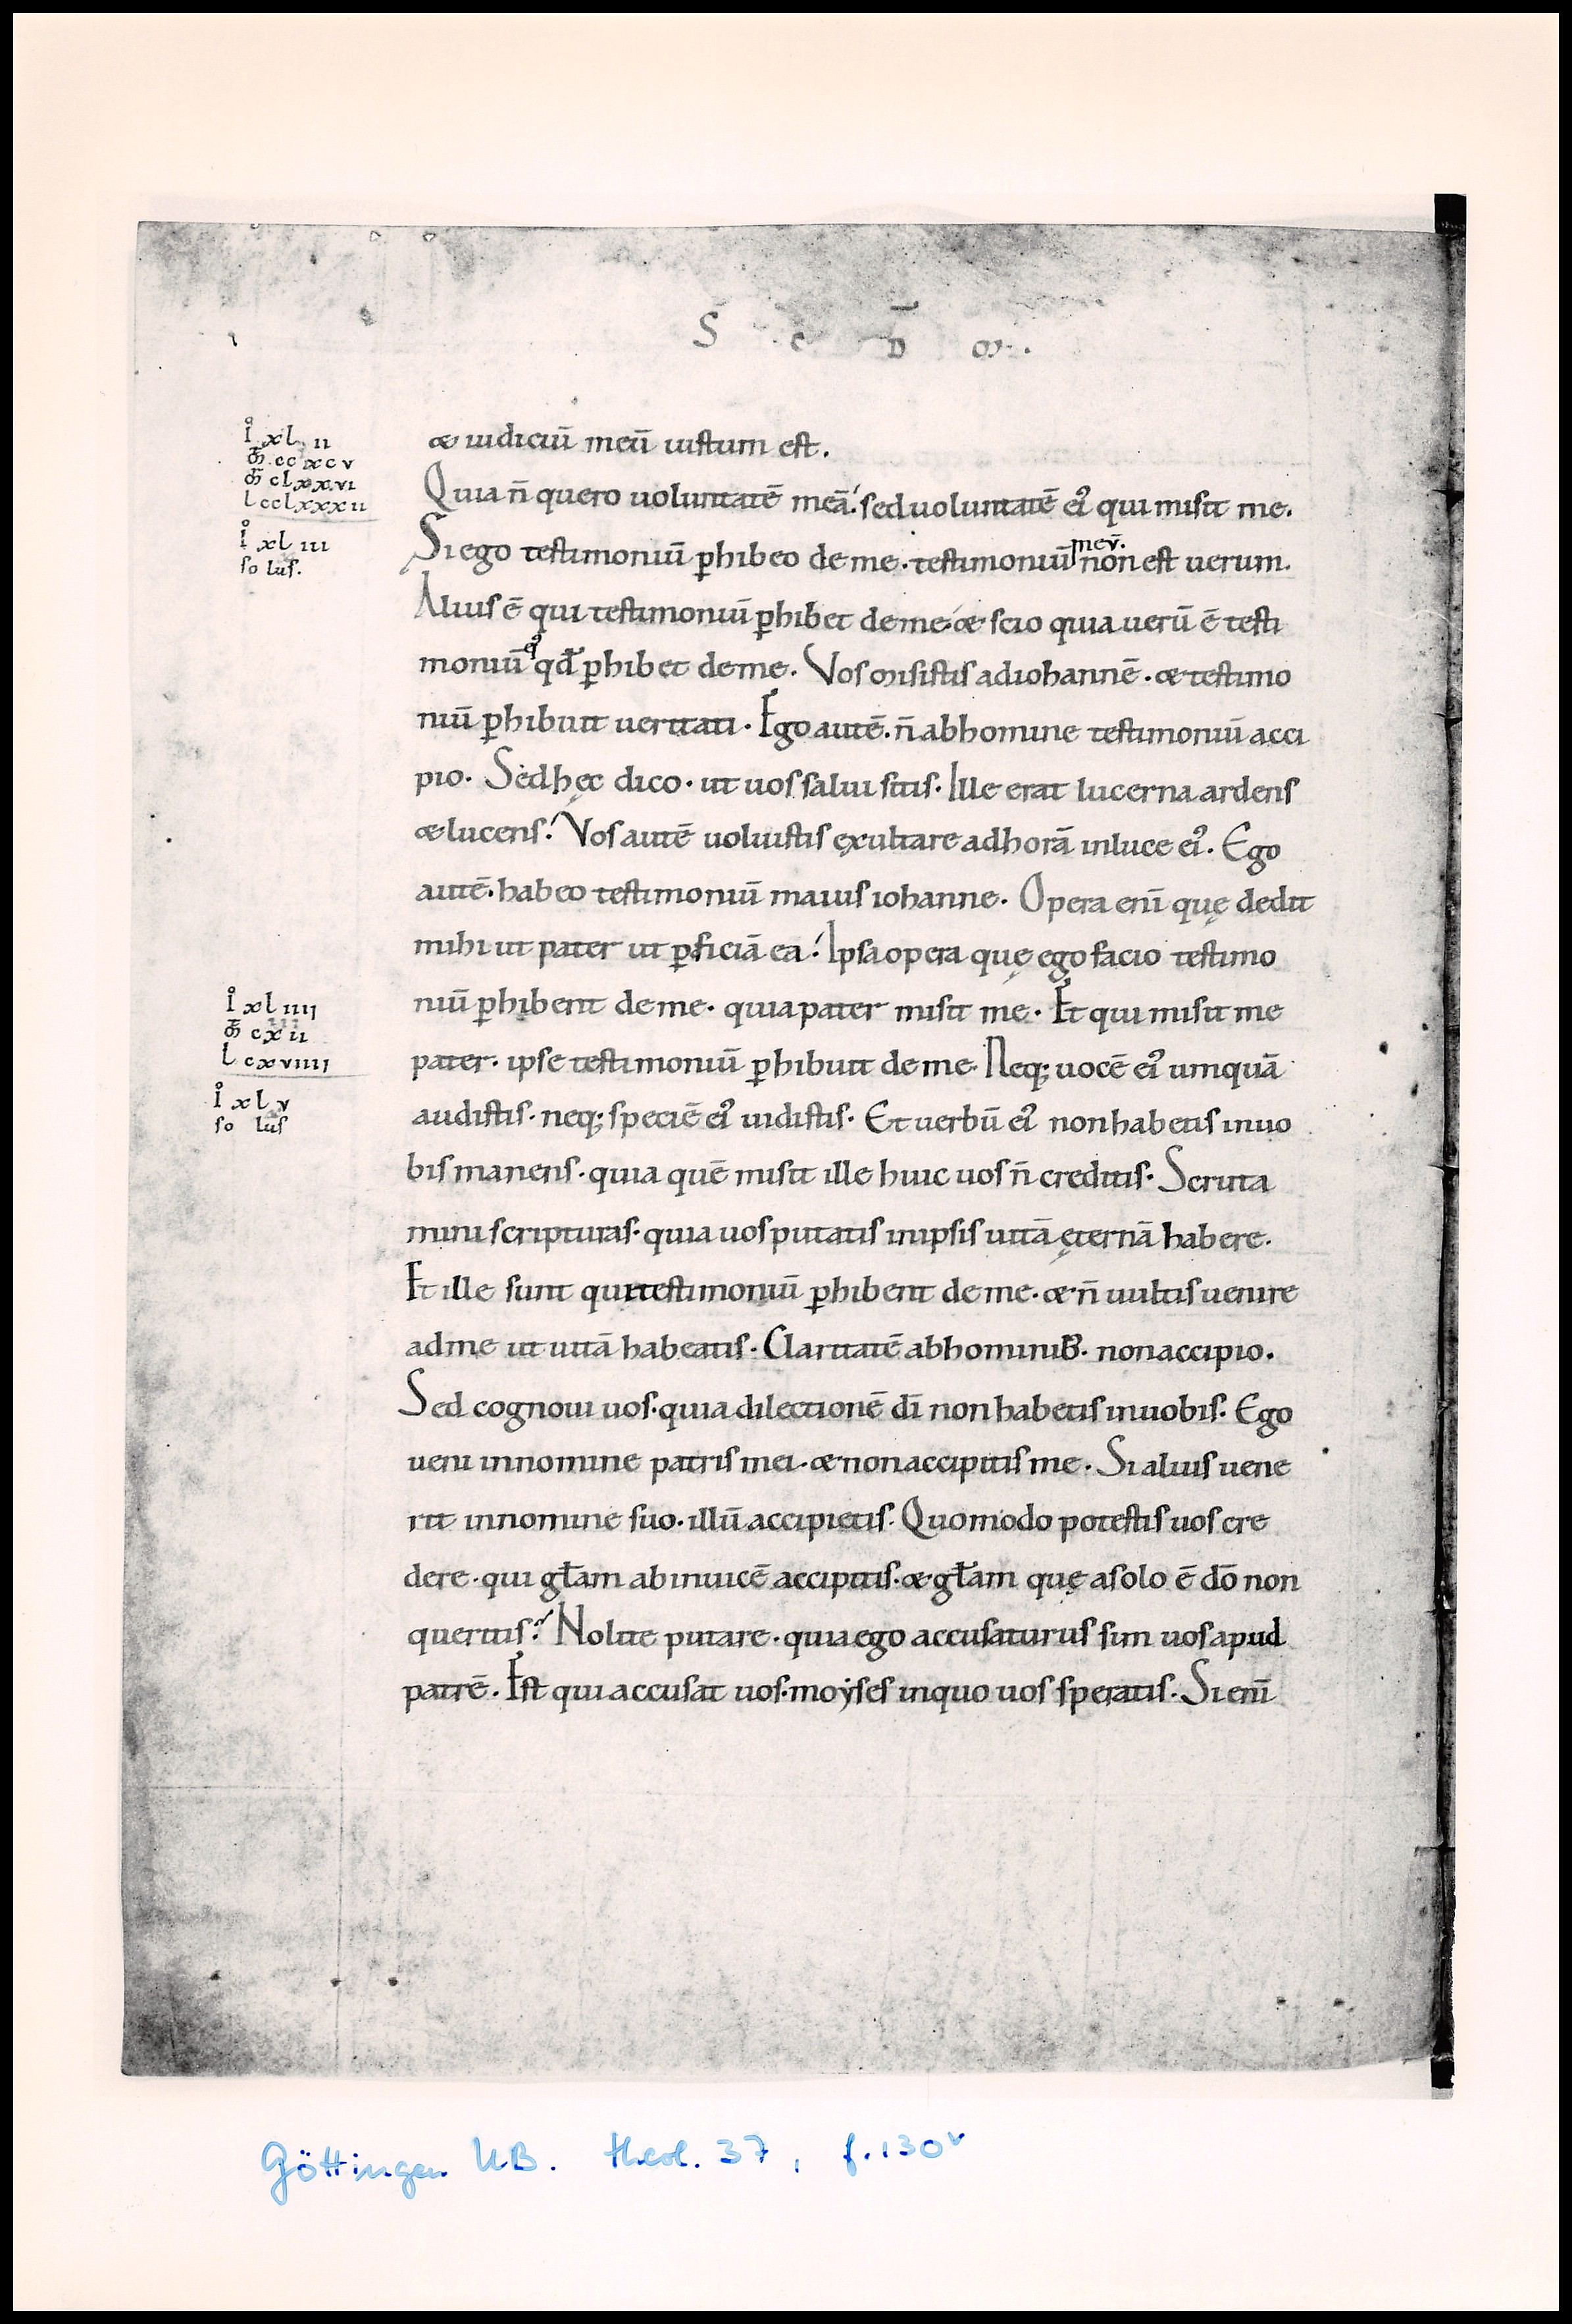 S c D̄ M.
I̊ xl ii
M̄ ccxcv
M̄ clxxvi
L cclxxxii
I̊ xl iii
so lus.
& iudiciū meū iustum est.
Quia n̄ quero uoluntatē meā: sed uoluntatē ei᾿ qui misit me.
Si ego testimoniū ꝑhibeo de me. testimoniū meū. non est uerum.
Alius ē qui testimoniū ꝑhibet de me. & scio quia uerū ē testi
moniū ei᾿ qđ ꝑhibet de me. Vos misistis ad iohannē. & testimo
niū ꝑhibuit ueritati. Ego autē. n̄ ab homine testimoniū acci
pio. Sed hęc dico. ut uos salui sitis. Ille erat lucerna ardens
& lucens: Vos autē uoluistis ęxultare ad horā in luce ei᾿. Ego
autē. habeo testimoniū maius iohanne. Opera enī quę dedit
mihi ut pater ut ꝑficiā ea: Ipsa opera quę ego facio testimo
I̊ xl iiii
M̄ cxii
L cxviiii
niū ꝑhibent de me. quia pater misit me. Et qui misit me
pater. ipse testimoniū ꝑhibuit de me. Neq; uocē ei᾿ umquā
I̊ xl v
so lus
audistis. neq; speciē ei᾿ uidistis. Et uerbū ei᾿ non habetis in uo
bis manens. quia quē misit ille huic uos n̄ creditis. Scruta
mini scripturas. quia uos putatis in ipsis uitā ęternā habere.
Et ille sunt qui testimoniū ꝑhibent de me. & n̄ uultis uenire
ad me ut uitā habeatis. Claritatē ab hominib; non accipio.
Sed cognoui uos. quia dilectionē dī non habetis in uobis. Ego
ueni in nomine patris mei. & non accipitis me. Si alius uene
rit in nomine suo. illū accipietis. Quomodo potestis uos cre
dere. qui gƚam ab inuicē accipitis. & gƚam quę a solo ē dō non
queritis? Nolite putare. quia ego accusaturus sim uos apud
patrē. Est qui accusat uos. moẏses in quo uos speratis. Si enī
Göttingen UB. theol. 37, f. 130v